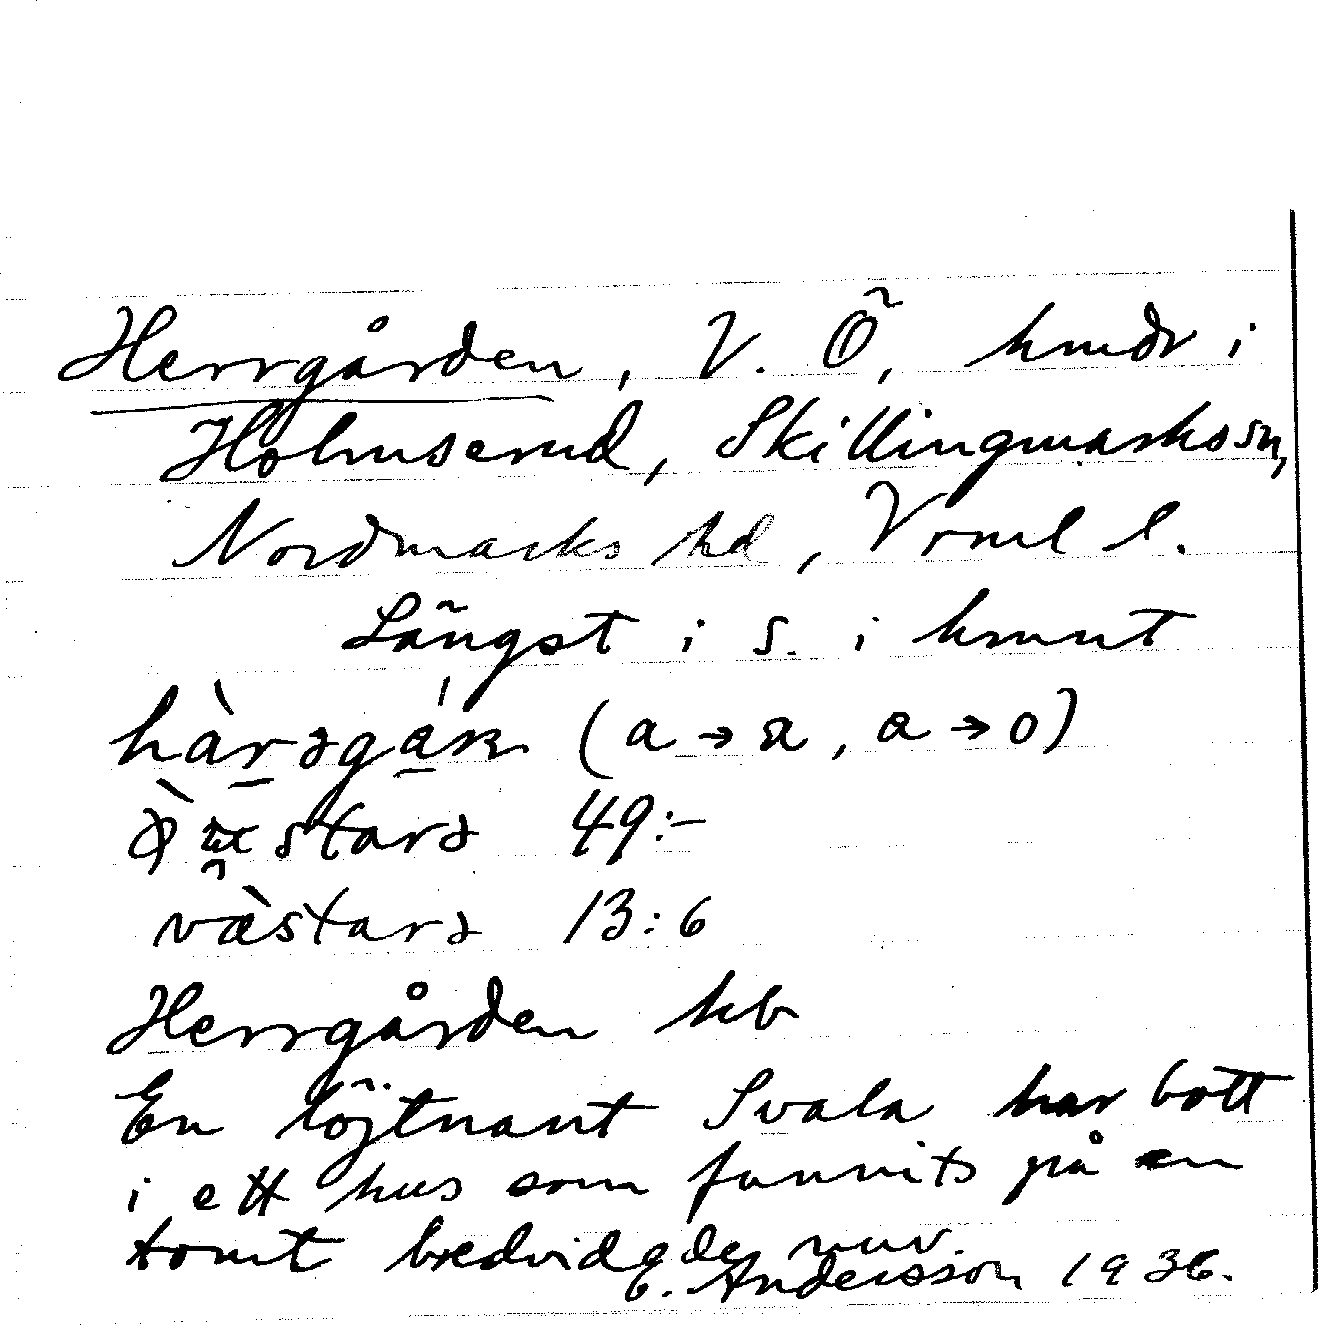 Herrgården, V. Ö, hmdr i
Holmserud, Skillingmarks sn,
Nordmarks hd, Vrml l.
Längst i s. i hmnt
(a → a, a → o)
49:-
västars 13:6
Herrgården kb
En löjtnant Svala har bott
i ett hus som funnits på en
tomt bredvid de nuv.
E. Andersson 1936.